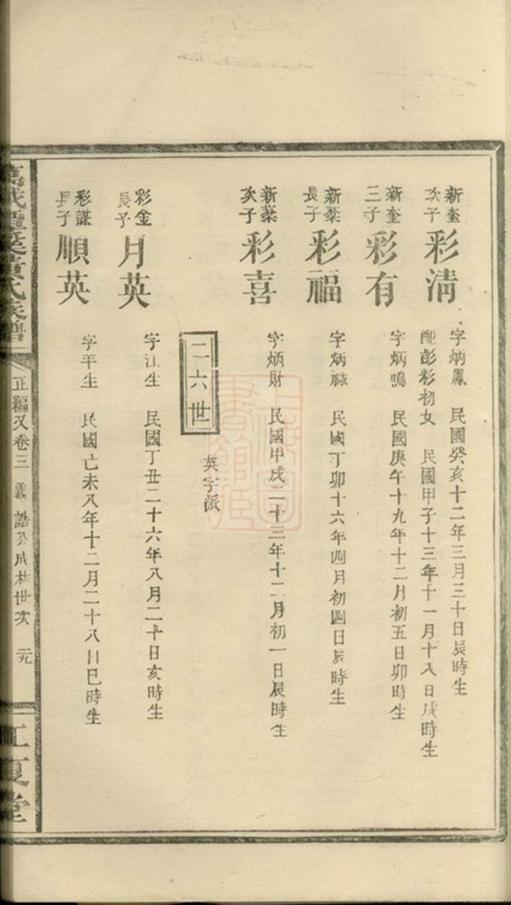 新奎次子 彩清 字炳鳳 民國癸亥十二年三月三十日辰時生
配彭彩初女 民國甲子十三年十一月十八日戌時生
新奎三子 彩有 字炳鳴 民國庚午十九年十二月初五日卯時生
新棻長子 彩福 字炳祿 民國丁卯十六年四月初四日辰時生
新棻次子 彩喜 字炳財 民國甲戌二十三年十二月初一日辰時生
二六世 英字派
彩金長子 月英 字江生 民國丁丑二十六年八月二十日亥時生
彩謀長子 順英 字平生 民國己未八年十二月二十八日巳時生
黃氏族譜 正編又卷三 義 誥公成林世次
江夏堂
上海圖書館藏